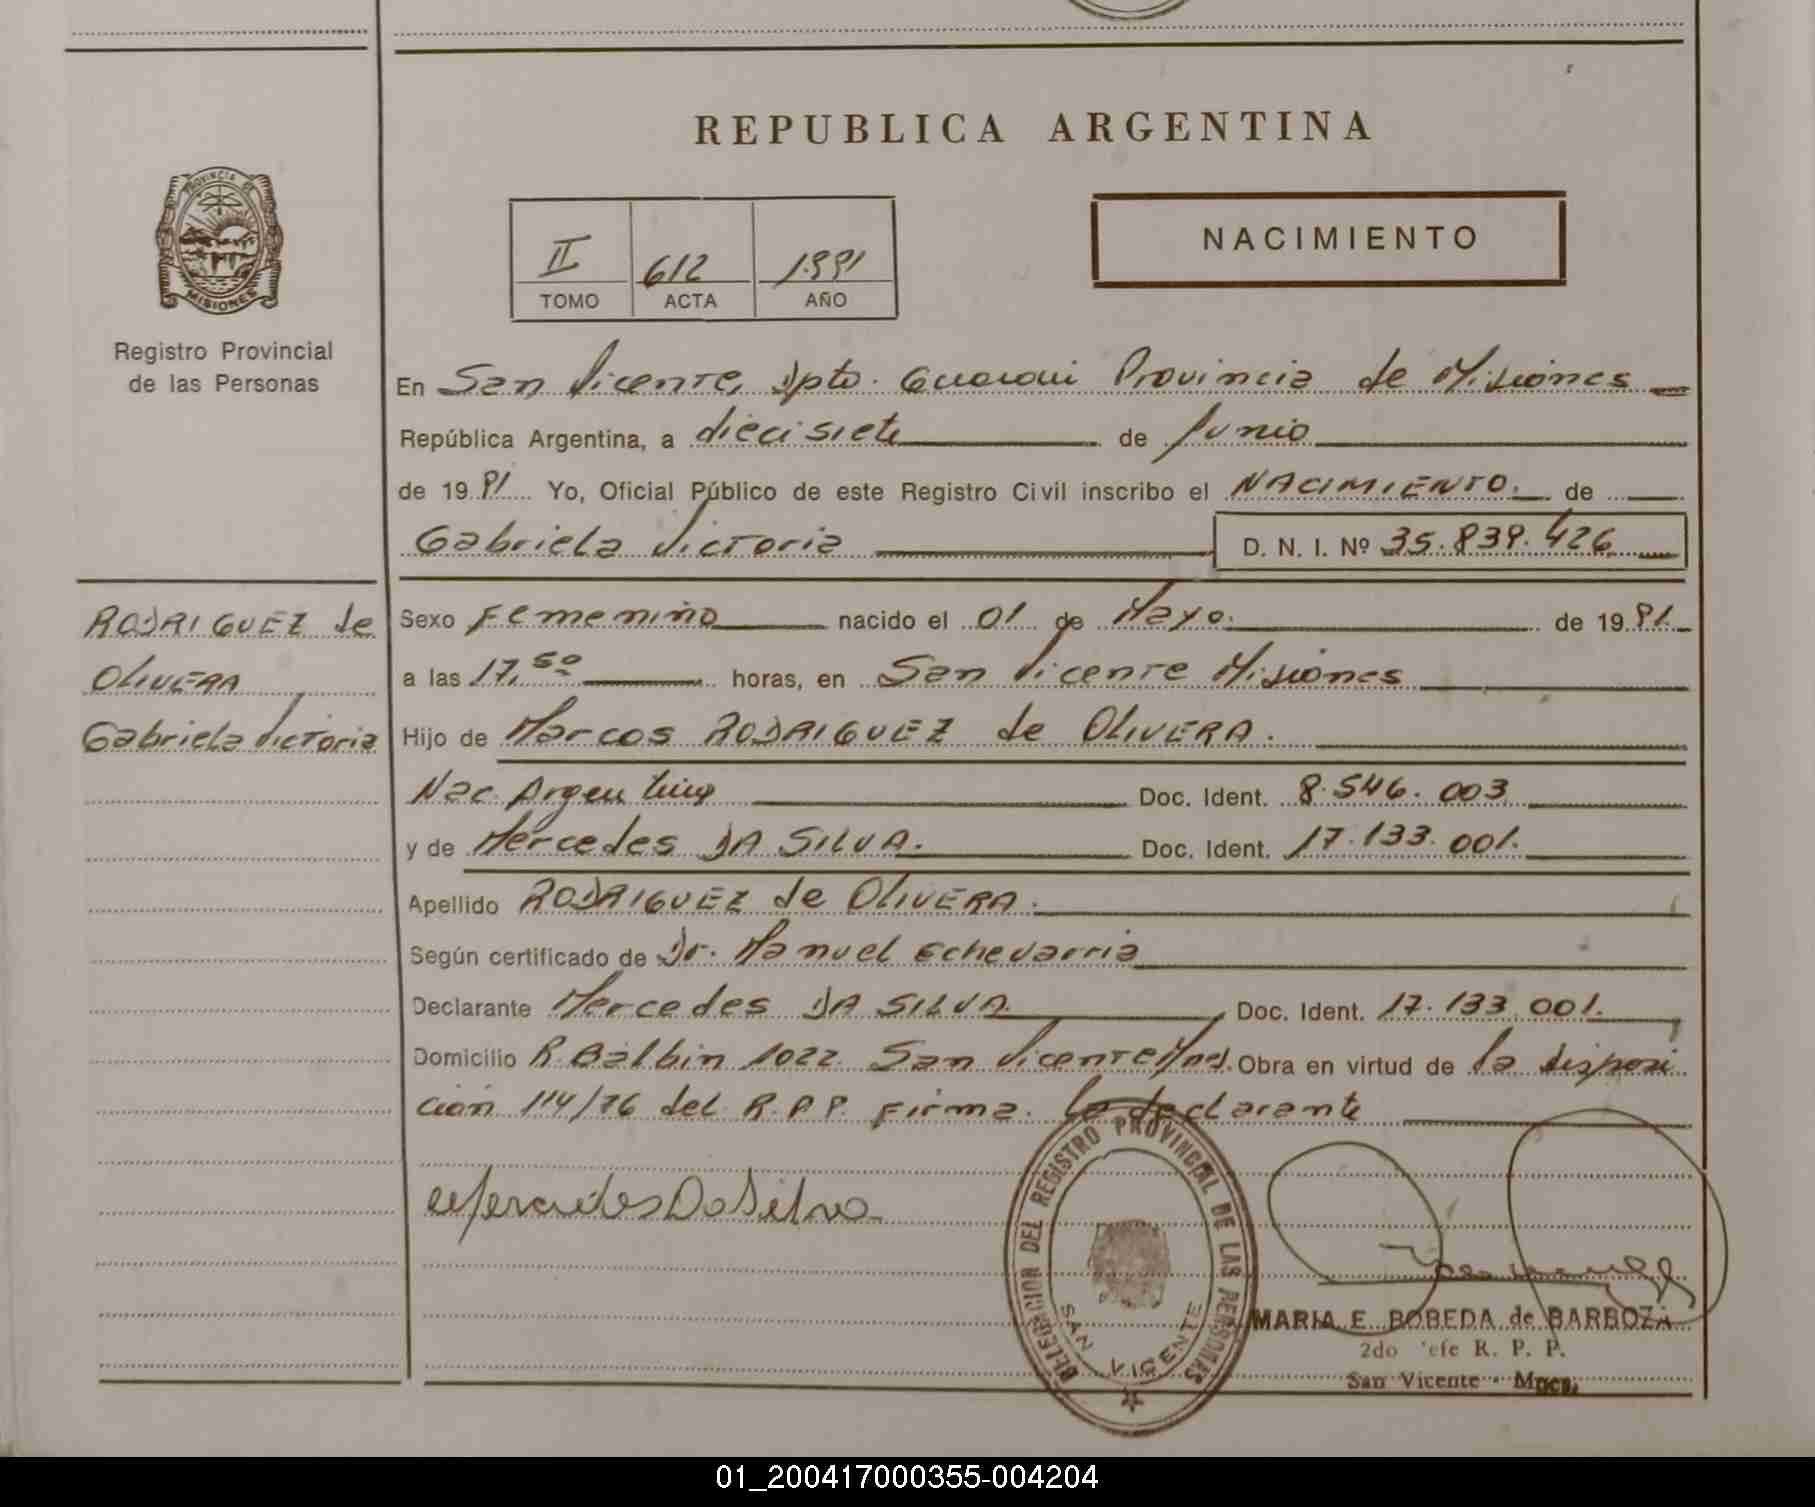 REPUBLICA ARGENTINA
PROVINCIA DE
MISIONES
Registro Provincial
de las Personas
II 612 1991
TOMO ACTA AÑO
NACIMIENTO
En San Vicente, Dpto. Guaraní Provincia de Misiones
República Argentina, a diecisiete de Junio
de 1991 Yo, Oficial Público de este Registro Civil inscribo el NACIMIENTO. de
Gabriela Victoria D. N. I. Nº 35.839.426
RODRIGUEZ de
OLIVERA
Gabriela Victoria
Sexo Femenino nacido el 01 de Mayo. de 1991.
a las 17,50 horas, en San Vicente Misiones
Hijo de Marcos RODRIGUEZ de OLIVERA.
Nac. Argentina Doc. Ident. 8.546.003
y de Mercedes DA SILVA. Doc. Ident. 17.133.001.
Apellido RODRIGUEZ de OLIVERA.
Según certificado de Dr. Manuel Echevarria
Declarante Mercedes DA SILVA. Doc. Ident. 17.133.001.
Domicilio R. Balbin 1022 San Vicente, Mnes. Obra en virtud de la disposi
ción 114/76 del R.P.P. Firma. la declarante
Mercedes Da Silva
DELEGACION DEL REGISTRO PROVINCIAL DE LAS PERSONAS
SAN VICENTE
MARIA E. BOBEDA de BARBOZA
2do Jefe R. P. P.
San Vicente - Mnes.
01_200417000355-004204